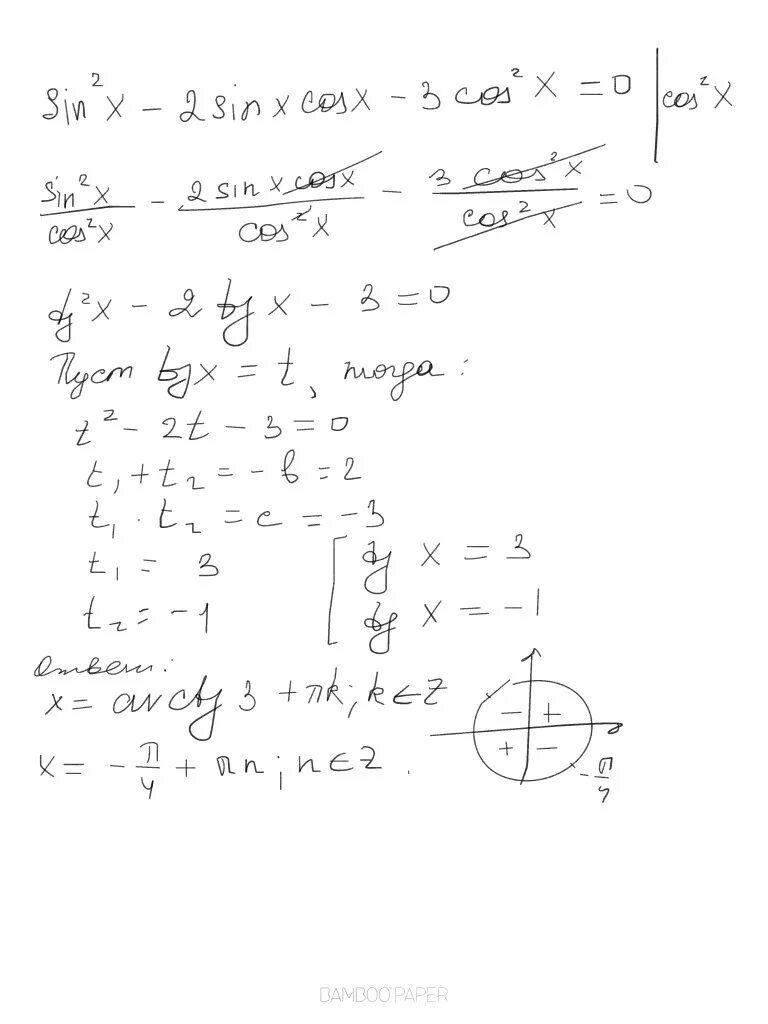 sin²x − 2 sin x cos x − 3 cos²x = 0 | cos²x
sin²x/cos²x − 2 sin x cos x/cos²x − 3 cos²x/cos²x = 0
tg²x − 2 tg x − 3 = 0
Пуст tg x = t, тогда:
t² − 2t − 3 = 0
t₁ + t₂ = − b = 2
t₁ · t₂ = c = −3
t₁ = 3 [ tg x = 3
t₂ = −1 tg x = −1
Ответ:
x = arctg 3 + πk; k ∈ Z
− +
x = − π/4 + πn; n ∈ Z.
+ −
− π/4
BAMBOO PAPER